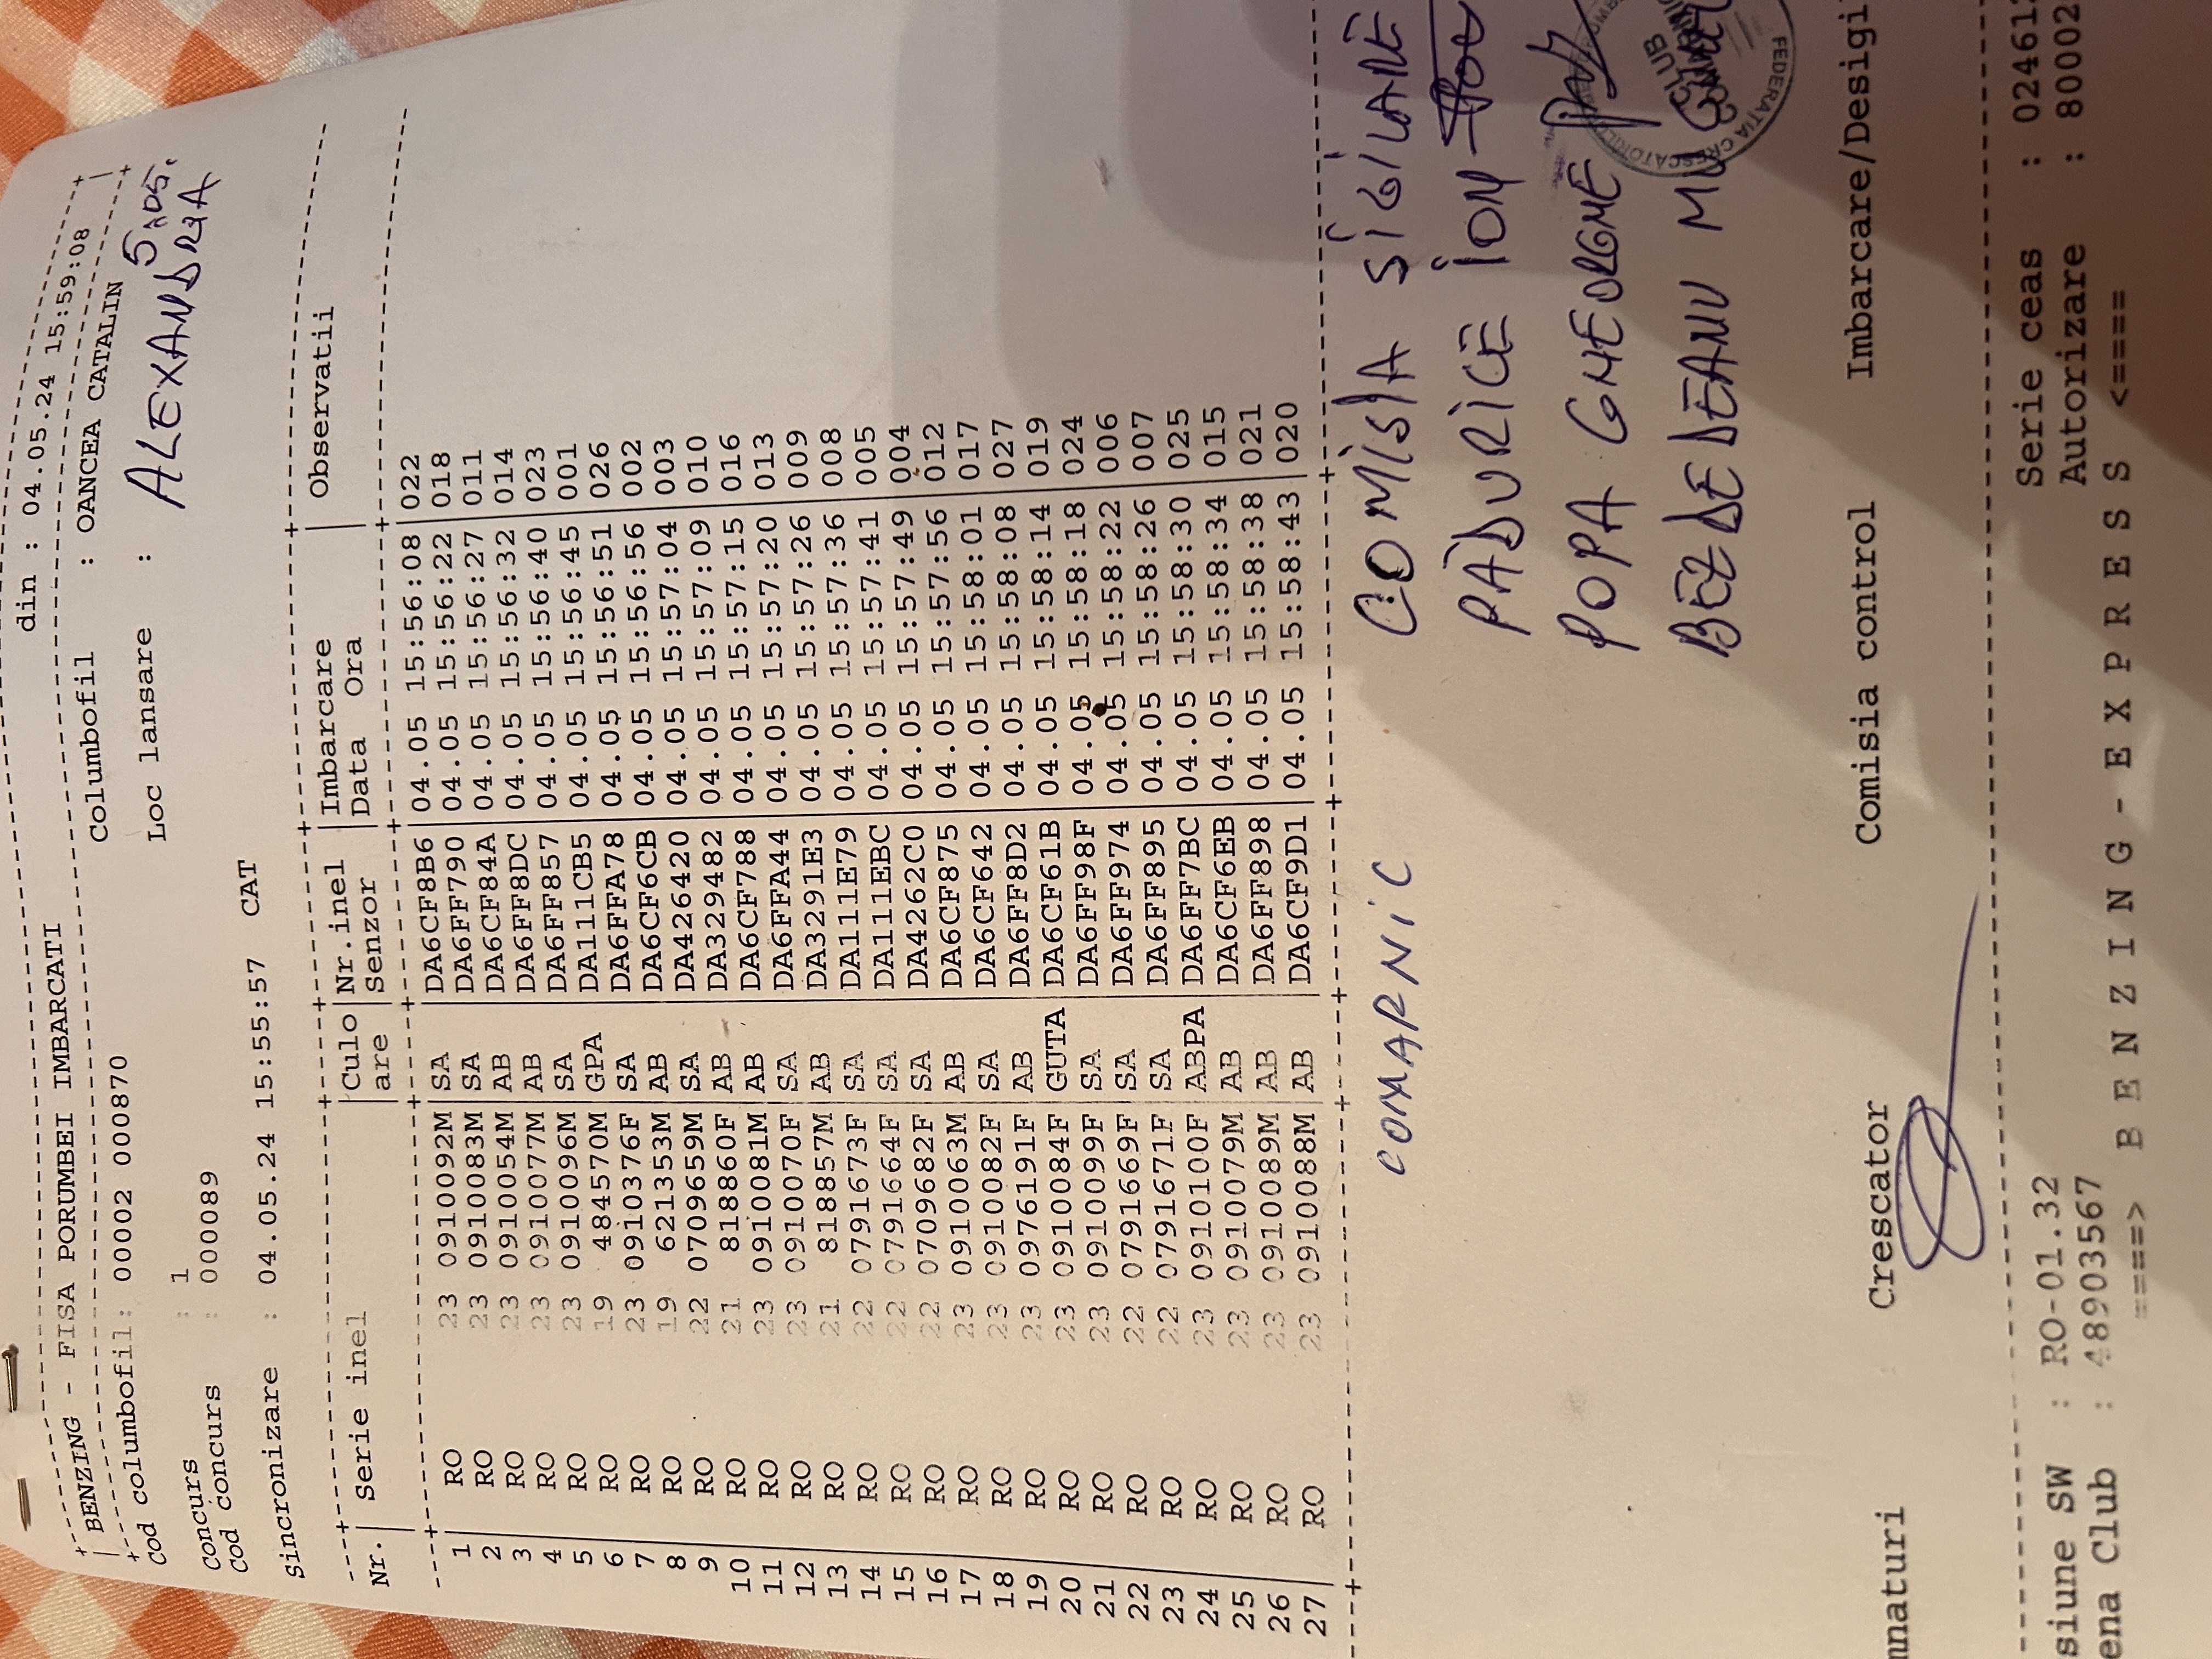 din : 04.05.24 15:59:08
BENZING - FISA PORUMBEI IMBARCATI
Cod columbofil: 00002 000870 Columbofil : OANCEA CATALIN
Loc lansare : ALEXANDRIA 5.05.
Concurs : 1
Cod concurs : 000089
Sincronizare : 04.05.24 15:55:57 CAT
Nr. | Serie inel | Culo | Nr.inel | Imbarcare | Observatii
are | Senzor | Data Ora
1 RO 23 0910092M SA DA6CF8B6 04.05 15:56:08 022
2 RO 23 0910083M SA DA6FF790 04.05 15:56:22 018
3 RO 23 0910054M AB DA6CF84A 04.05 15:56:27 011
4 RO 23 0910077M AB DA6FF8DC 04.05 15:56:32 014
5 RO 23 0910096M SA DA6FF857 04.05 15:56:40 023
6 RO 19 484570M GPA DA111CB5 04.05 15:56:45 001
7 RO 23 0910376F SA DA6FFA78 04.05 15:56:51 026
8 RO 19 621353M AB DA6CF6CB 04.05 15:56:56 002
9 RO 22 0709659M SA DA426420 04.05 15:57:04 003
10 RO 21 818860F AB DA329482 04.05 15:57:09 010
11 RO 23 0910081M AB DA6CF788 04.05 15:57:15 016
12 RO 23 0910070F SA DA6FFA44 04.05 15:57:20 013
13 RO 21 818857M AB DA3291E3 04.05 15:57:26 009
14 RO 22 0791673F SA DA111E79 04.05 15:57:36 008
15 RO 22 0791664F SA DA111EBC 04.05 15:57:41 005
16 RO 22 0709682F SA DA4262C0 04.05 15:57:49 004
17 RO 23 0910063M AB DA6CF875 04.05 15:57:56 012
18 RO 23 0910082F SA DA6CF642 04.05 15:58:01 017
19 RO 23 0976191F AB DA6FF8D2 04.05 15:58:08 027
20 RO 23 0910084F GUTA DA6CF61B 04.05 15:58:14 019
21 RO 23 0910099F SA DA6FF98F 04.05 15:58:18 024
22 RO 22 0791669F SA DA6FF974 04.05 15:58:22 006
23 RO 22 0791671F SA DA6FF895 04.05 15:58:26 007
24 RO 23 0910100F ABPA DA6FF7BC 04.05 15:58:30 025
25 RO 23 0910079M AB DA6CF6EB 04.05 15:58:34 015
26 RO 23 0910089M AB DA6FF898 04.05 15:58:38 021
27 RO 23 0910088M AB DA6CF9D1 04.05 15:58:43 020
COMARNIC COMISIA SIGILARE
PADURICE ION
POPA GHEORGHE
BEZDEDEANU
CLUB
FEDERATIA CRESCATORILOR
mnaturi : Crescator Comisia control Imbarcare/Desigi
siune SW : RO-01.32 Serie ceas : 02461
ena Club : 48903567 Autorizare : 80002
====> B E N Z I N G - E X P R E S S <====